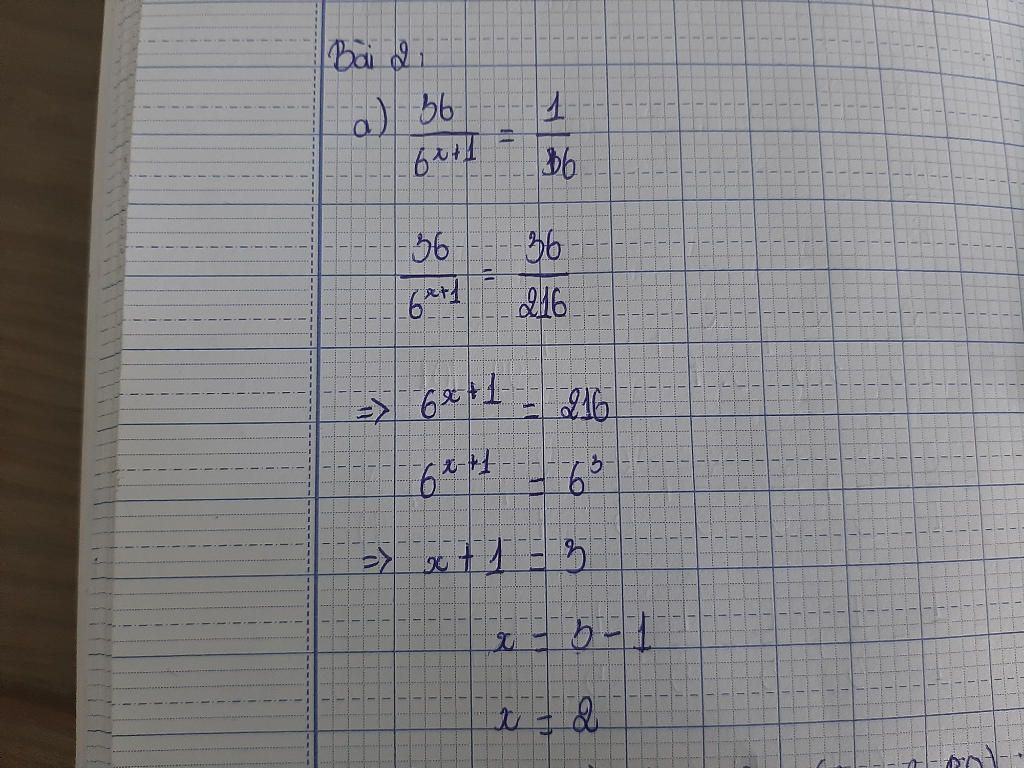 Bài 2:
a) 36/6^(x+1) = 1/6
36/6^(x+1) = 36/216
=> 6^(x+1) = 216
6^(x+1) = 6^3
=> x + 1 = 3
x = 3 - 1
x = 2